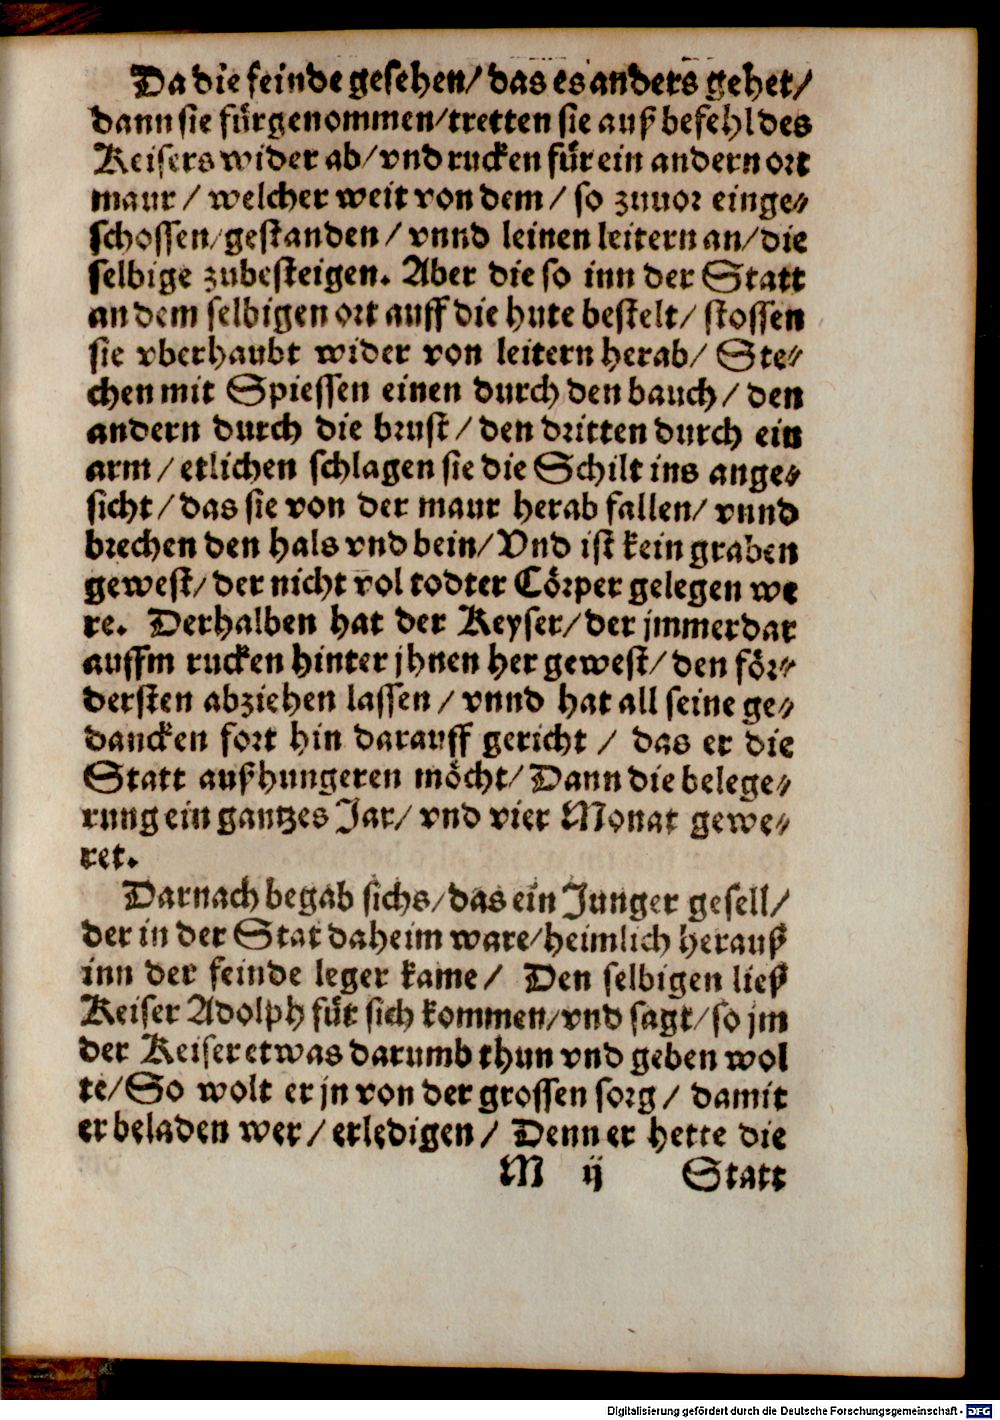 Da die feinde gesehen/ das es anders gehet/
dann sie fürgenommen/tretten sie auß befehl des
Keisers wider ab/vnd rucken für ein andern ort
maur / welcher weit von dem / so zuuor einge⸗
schossen/gestanden / vnnd leinen leitern an/die
selbige zubesteigen. Aber die so inn der Statt
an dem selbigen ort auff die hute bestelt/ stossen
sie vberhaubt wider von leitern herab/ Ste⸗
chen mit Spiessen einen durch den bauch / den
andern durch die brust / den dritten durch ein
arm / etlichen schlagen sie die Schilt ins ange⸗
sicht / das sie von der maur herab fallen/ vnnd
brechen den hals vnd bein/ Vnd ist kein graben
gewest/ der nicht vol todter Cörper gelegen we
re. Derhalben hat der Keyser/ der jmmerdar
auffm rucken hinter jhnen her gewest/ den för⸗
dersten abziehen lassen / vnnd hat all seine ge⸗
dancken fort hin darauff gericht / das er die
Statt außhungeren möcht/ Dann die belege⸗
rung ein gantzes Jar/ vnd vier Monat gewe⸗
ret.
Darnach begab sichs/das ein Junger gesell/
der in der Stat daheim ware/heimlich herauß
inn der feinde leger kame / Den selbigen ließ
Keiser Adolph für sich kommen/vnd sagt/so jm
der Keiser etwas darumb thun vnd geben wol
te/So wolt er jn von der grossen sorg / damit
er beladen wer / erledigen / Denn er hette die
M ij Statt
Digitalisierung gefördert durch die Deutsche Forschungsgemeinschaft - DFG